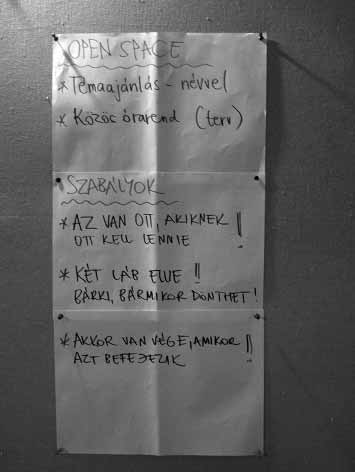 OPEN SPACE
* Témaajánlás - névvel
* Közös órarend (terv)
SZABÁLYOK
* AZ VAN OTT, AKIKNEK
OTT KELL LENNIE !!
* KÉT LÁB ELVE !!
BÁRKI, BÁRMIKOR DÖNTHET!
* AKKOR VAN VÉGE, AMIKOR
AZT BEFEJEZIK !!